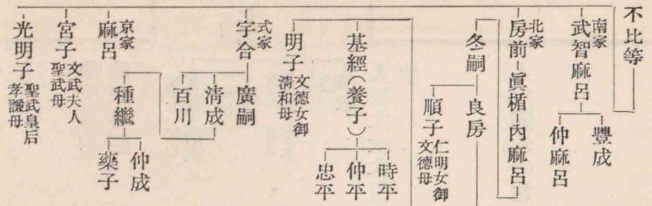 不比等
南家
武智麻呂
豐成
仲麻呂
北家
房前—眞楯—內麻呂
冬嗣—良房
順子
仁明女御
文德母
基經(養子)
時平
仲平
忠平
明子
文德女御
淸和母
式家
宇合—廣嗣
淸成
百川
種繼
仲成
藥子
京家
麻呂
宮子
文武夫人
聖武母
光明子
聖武皇后
孝謙母